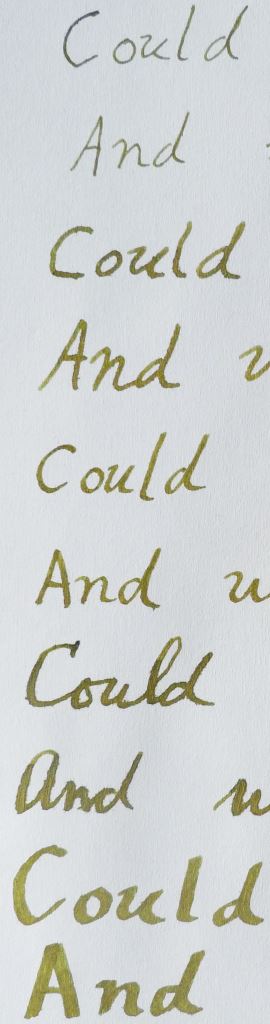 Could
And
Could
And
Could
And
Could
And
Could
And